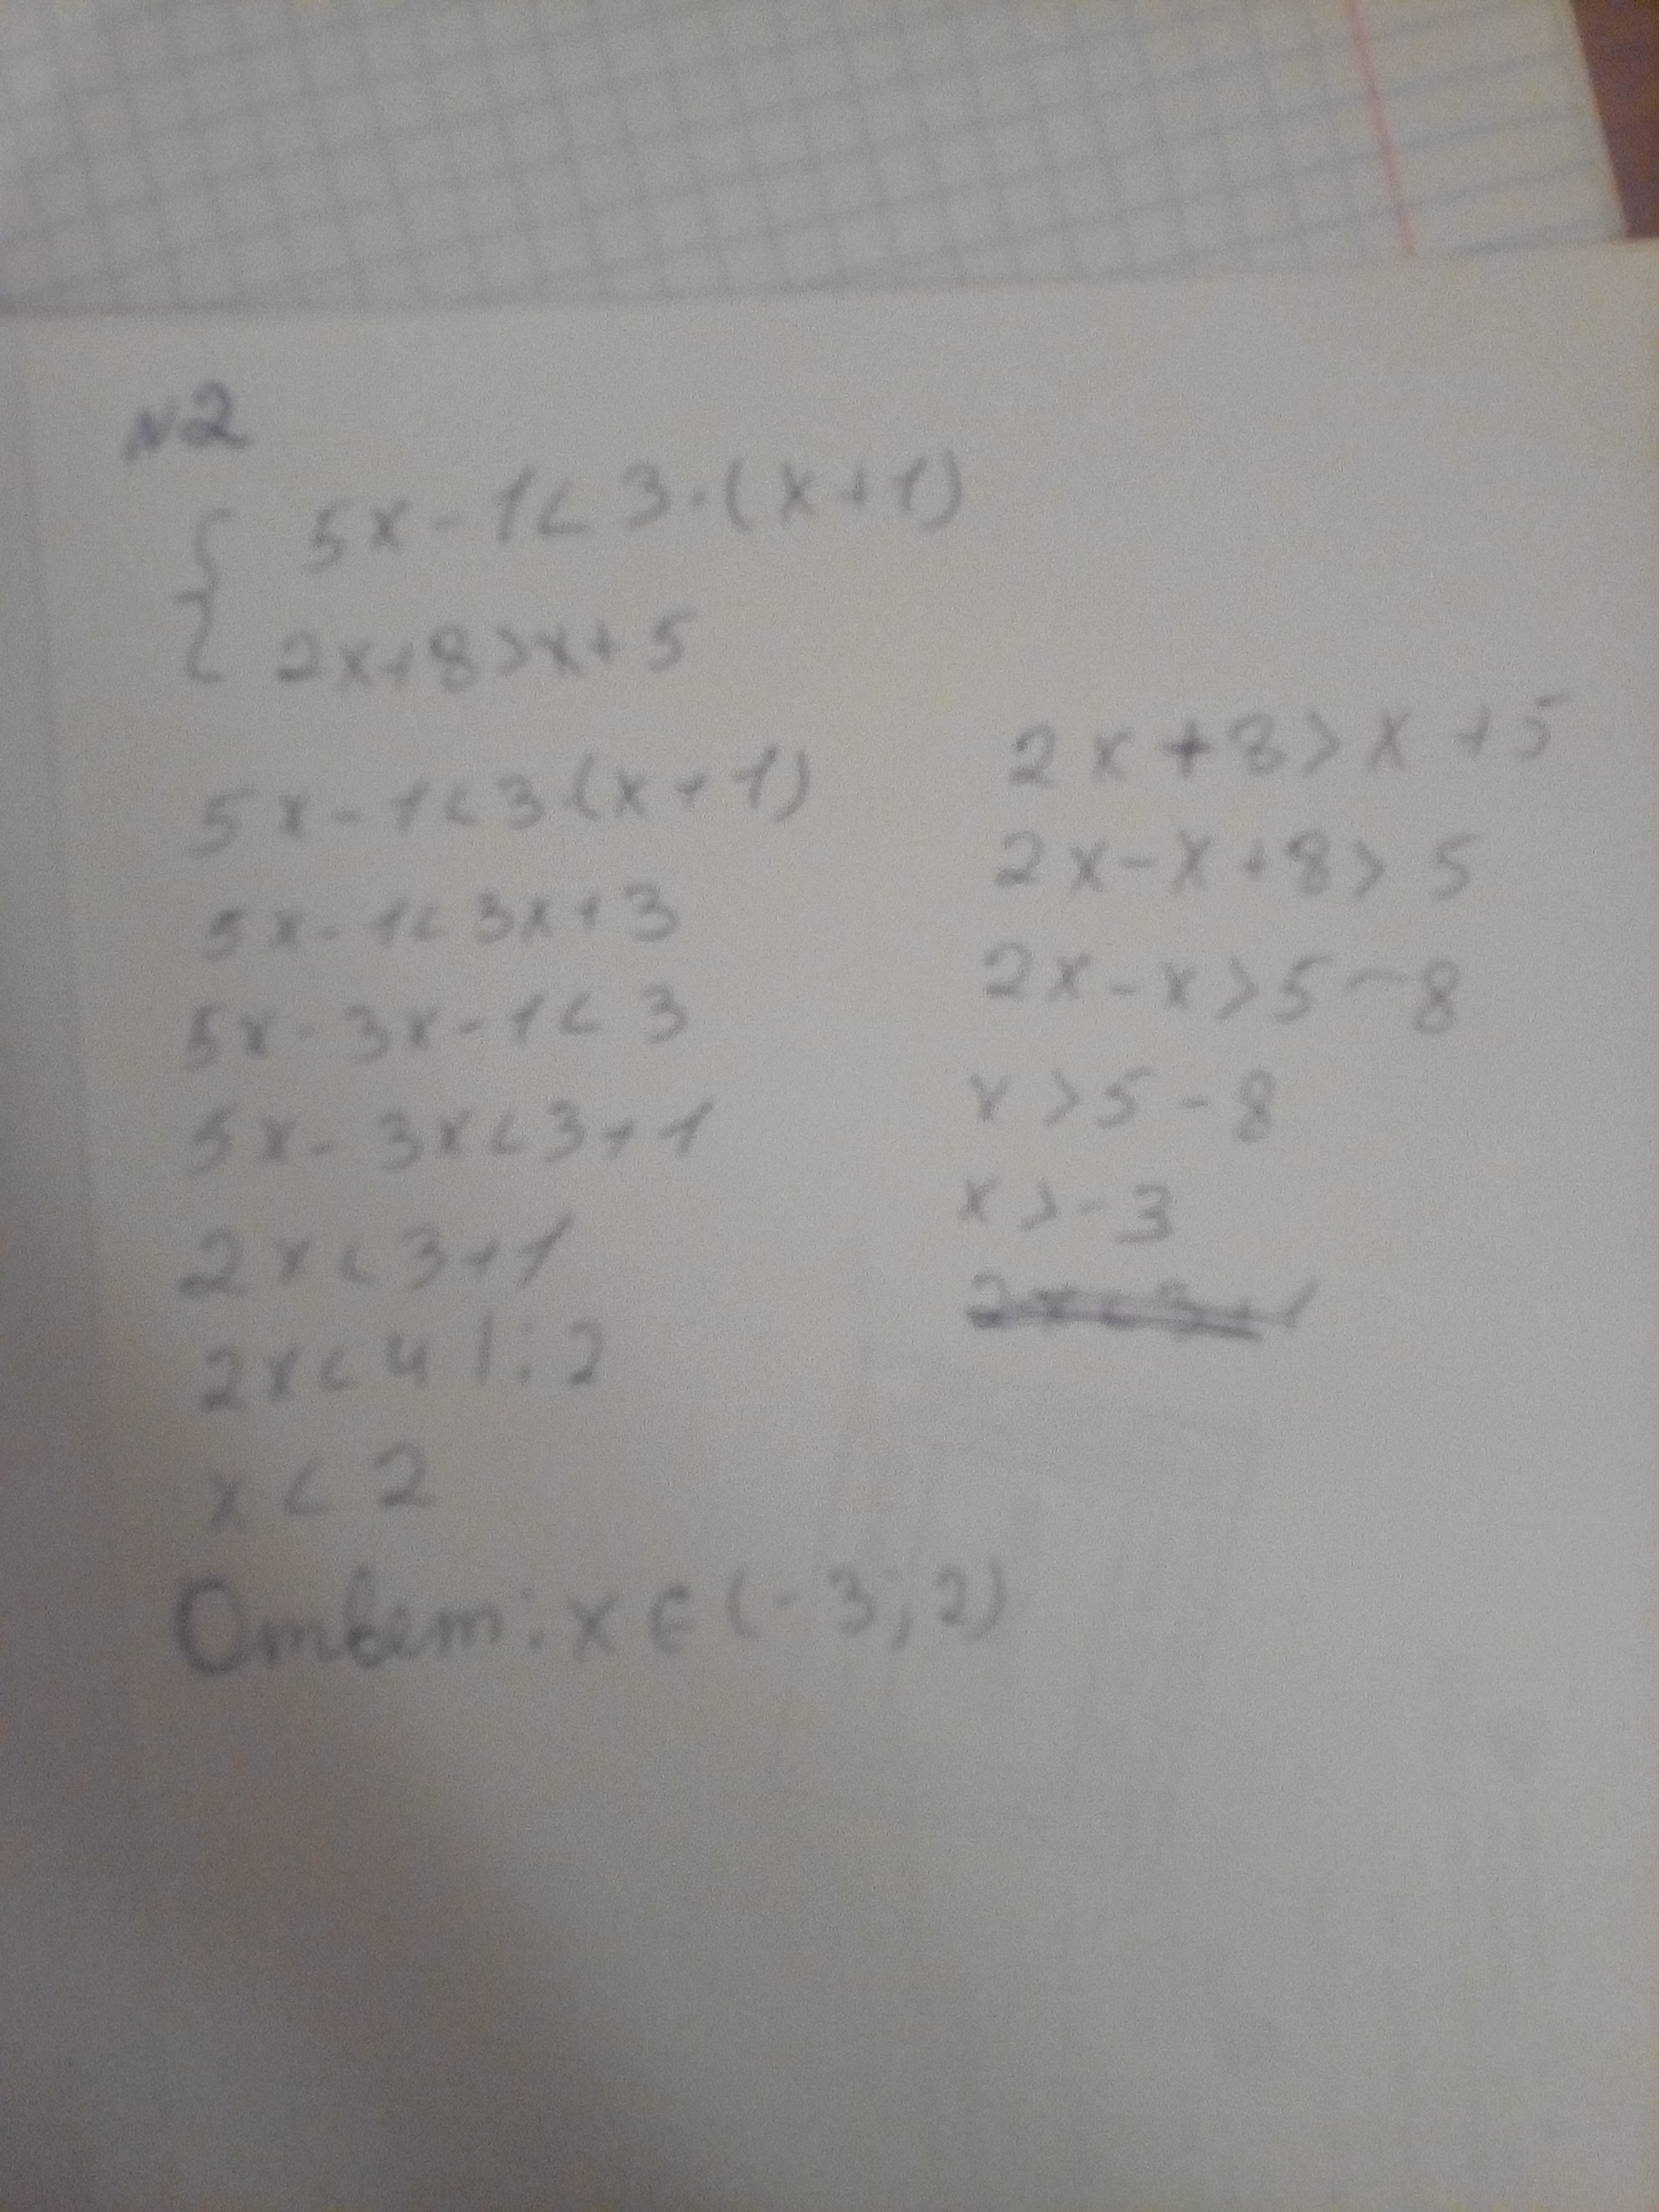 №2
{ 5x-1<3·(x+1)
2x+8>x+5
5x-1<3(x+1)
5x-1<3x+3
5x-3x-1<3
5x-3x<3+1
2x<3+1
2x<4 |:2
x<2
2x+8>x+5
2x-x+8>5
2x-x>5-8
x>5-8
x>-3
Ответ: x∈(-3;2)